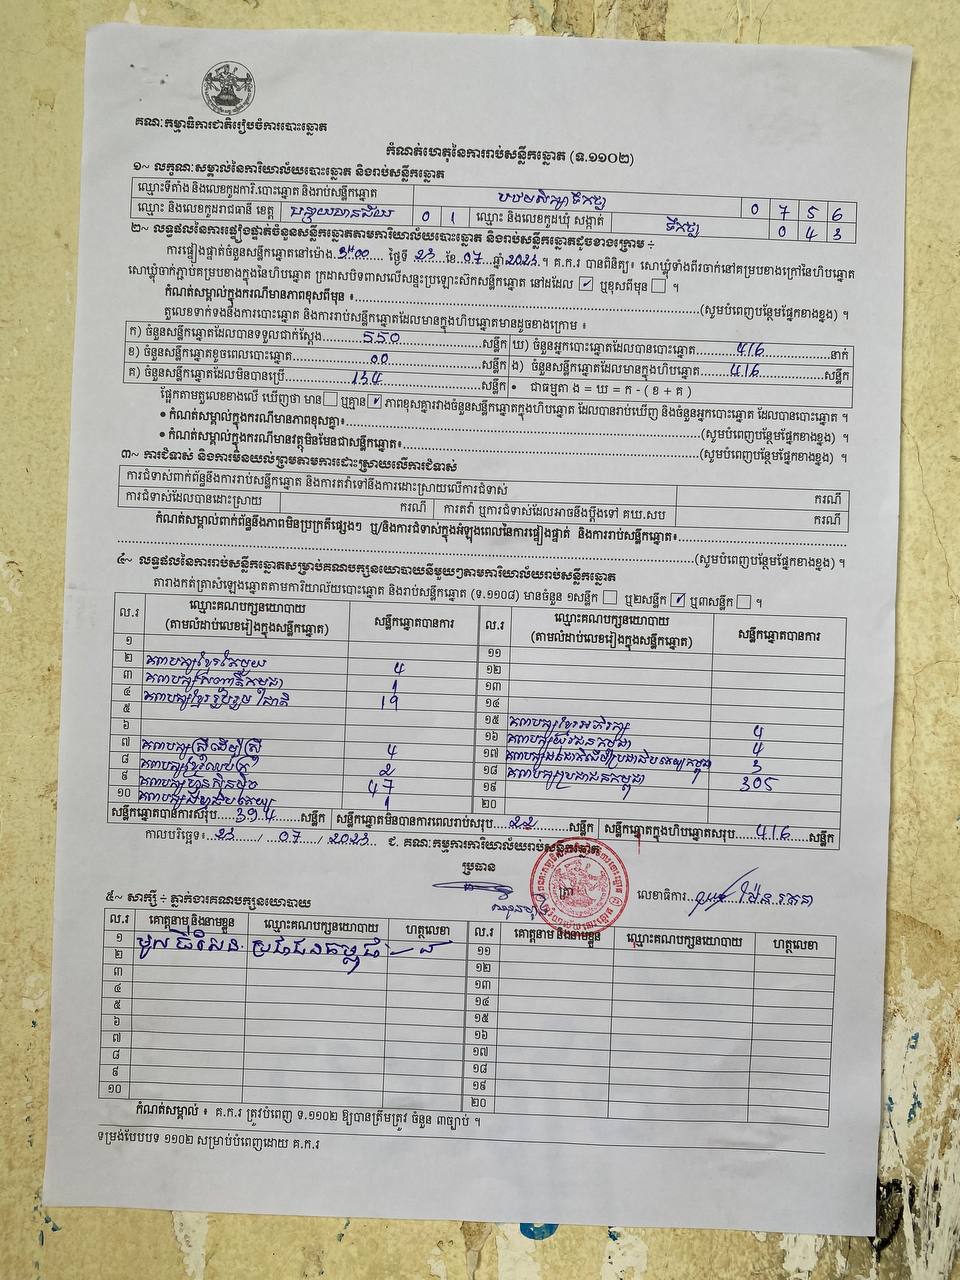 គណៈកម្មាធិការជាតិរៀបចំការបោះឆ្នោត
កំណត់ហេតុនៃការរាប់សន្លឹកឆ្នោត (ទ.១១០២)
១~ លក្ខណៈសម្គាល់នៃការិយាល័យបោះឆ្នោត និងរាប់សន្លឹកឆ្នោត
ឈ្មោះទីតាំង និងលេខកូដការិ.បោះឆ្នោត និងរាប់សន្លឹកឆ្នោត បឋមសិក្សាទឹកថ្លា 0 7 5 6
ឈ្មោះ និងលេខកូដរាជធានី ខេត្ត បន្ទាយមានជ័យ 0 1 ឈ្មោះ និងលេខកូដឃុំ សង្កាត់ ទឹកថ្លា 0 4 3
២~ លទ្ធផលនៃការផ្ទៀងផ្ទាត់ចំនួនសន្លឹកឆ្នោតតាមការិយាល័យបោះឆ្នោត និងរាប់សន្លឹកឆ្នោតដូចខាងក្រោម ÷
ការផ្ទៀងផ្ទាត់ចំនួនសន្លឹកឆ្នោតនៅម៉ោង 3h00 ថ្ងៃទី 23 ខែ 07 ឆ្នាំ 2023 ។ គ.ក.រ បានពិនិត្យ៖ សោឃ្លុំទាំងពីរចាក់នៅគម្របខាងក្រៅនៃហិបឆ្នោត
សោឃ្លុំចាក់ភ្ជាប់គម្របខាងក្នុងនៃហិបឆ្នោត ក្រដាសបិទពាសលើសន្ទះប្រឡោះស៊កសន្លឹកឆ្នោត នៅដដែល ✓ ឬខុសពីមុន ។
កំណត់សម្គាល់ក្នុងករណីមានភាពខុសពីមុន ៖ (សូមបំពេញបន្ថែមផ្នែកខាងខ្នង) ។
តួលេខទាក់ទងនឹងការបោះឆ្នោត និងការរាប់សន្លឹកឆ្នោតដែលមានក្នុងហិបឆ្នោតមានដូចខាងក្រោម ៖
ក) ចំនួនសន្លឹកឆ្នោតដែលបានទទួលជាក់ស្តែង 550 សន្លឹក ឃ) ចំនួនអ្នកបោះឆ្នោតដែលបានបោះឆ្នោត 416 នាក់
ខ) ចំនួនសន្លឹកឆ្នោតខូចពេលបោះឆ្នោត 00 សន្លឹក ង) ចំនួនសន្លឹកឆ្នោតដែលមានក្នុងហិបឆ្នោត 416 សន្លឹក
គ) ចំនួនសន្លឹកឆ្នោតដែលមិនបានប្រើ 134 សន្លឹក • ជាធម្មតា ង = ឃ = ក - ( ខ + គ )
ផ្អែកតាមតួលេខខាងលើ ឃើញថា មាន ឬគ្មាន ✓ ភាពខុសគ្នារវាងចំនួនសន្លឹកឆ្នោតក្នុងហិបឆ្នោត ដែលបានរាប់ឃើញ និងចំនួនអ្នកបោះឆ្នោត ដែលបានបោះឆ្នោត ។
• កំណត់សម្គាល់ក្នុងករណីមានភាពខុសគ្នា៖ (សូមបំពេញបន្ថែមផ្នែកខាងខ្នង) ។
• កំណត់សម្គាល់ក្នុងករណីមានវត្ថុមិនមែនជាសន្លឹកឆ្នោត៖ (សូមបំពេញបន្ថែមផ្នែកខាងខ្នង) ។
៣~ ការជំទាស់ និងការមិនយល់ព្រមតាមការដោះស្រាយលើការជំទាស់
ការជំទាស់ពាក់ព័ន្ធនឹងការរាប់សន្លឹកឆ្នោត និងការតវ៉ាទៅនឹងការដោះស្រាយលើការជំទាស់ ករណី
ការជំទាស់ដែលបានដោះស្រាយ ករណី ការតវ៉ា ឬការជំទាស់ដែលអាចនឹងប្តឹងទៅ គឃ.សប ករណី
កំណត់សម្គាល់ពាក់ព័ន្ធនឹងភាពមិនប្រក្រតីផ្សេងៗ ឬ/និងការជំទាស់ក្នុងអំឡុងពេលនៃការផ្ទៀងផ្ទាត់ និងការរាប់សន្លឹកឆ្នោត៖
(សូមបំពេញបន្ថែមផ្នែកខាងខ្នង) ។
៤~ លទ្ធផលនៃការរាប់សន្លឹកឆ្នោតសម្រាប់គណបក្សនយោបាយនីមួយៗតាមការិយាល័យរាប់សន្លឹកឆ្នោត
តារាងកត់ត្រាសំឡេងឆ្នោតតាមការិយាល័យបោះឆ្នោត និងរាប់សន្លឹកឆ្នោត (ទ.១១០៨) មានចំនួន ១សន្លឹក ឬ២សន្លឹក ✓ ឬ៣សន្លឹក ។
ល.រ ឈ្មោះគណបក្សនយោបាយ (តាមលំដាប់លេខរៀងក្នុងសន្លឹកឆ្នោត) សន្លឹកឆ្នោតបានការ ល.រ ឈ្មោះគណបក្សនយោបាយ (តាមលំដាប់លេខរៀងក្នុងសន្លឹកឆ្នោត) សន្លឹកឆ្នោតបានការ
១ ១១
២ គណបក្សខ្មែរតែមួយ 4 ១២
៣ គណបក្សសញ្ជាតិកម្ពុជា 1 ១៣
៤ គណបក្សខ្មែររួបរួមជាតិ 19 ១៤
៥ ១៥ គណបក្សខ្មែរអភិរក្ស 4
៦ ១៦ គណបក្សយុវជនកម្ពុជា 4
៧ គណបក្សស្រីដើម្បីស្រី 4 ១៧ គណបក្សជនជាតិដើមប្រជាធិបតេយ្យកម្ពុជា 3
៨ គណបក្សខ្មែរឈប់ក្រ 2 ១៨ គណបក្សប្រជាជនកម្ពុជា 305
៩ គណបក្សហ្វ៊ុនស៊ិនប៉ិច 47 ១៩
១០ 1 ២០
សន្លឹកឆ្នោតបានការសរុប 394 សន្លឹក សន្លឹកឆ្នោតមិនបានការពេលរាប់សរុប 22 សន្លឹក សន្លឹកឆ្នោតក្នុងហិបឆ្នោតសរុប 416 សន្លឹក
កាលបរិច្ឆេទ៖ 23 / 07 / 2023 ជ. គណៈកម្មការការិយាល័យរាប់សន្លឹកឆ្នោត
ប្រធាន
ត្រា
លេខាធិការ
៥~ សាក្សី ÷ ភ្នាក់ងារគណបក្សនយោបាយ
ល.រ គោត្តនាម និងនាមខ្លួន ឈ្មោះគណបក្សនយោបាយ ហត្ថលេខា ល.រ គោត្តនាម និងនាមខ្លួន ឈ្មោះគណបក្សនយោបាយ ហត្ថលេខា
១ ប្រជាជនកម្ពុជា ១១
២ ១២
៣ ១៣
៤ ១៤
៥ ១៥
៦ ១៦
៧ ១៧
៨ ១៨
៩ ១៩
១០ ២០
កំណត់សម្គាល់ ៖ គ.ក.រ ត្រូវបំពេញ ទ.១១០២ ឱ្យបានត្រឹមត្រូវ ចំនួន ៣ច្បាប់ ។
ទម្រង់បែបបទ ១១០២ សម្រាប់បំពេញដោយ គ.ក.រ